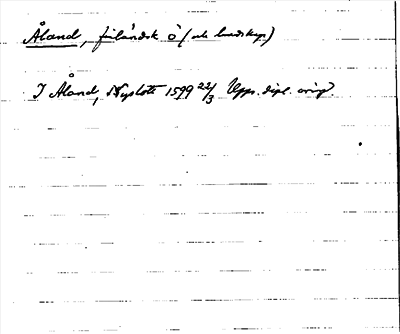 Åland, finländsk ö (ock landskap)
I Åland, Nyslott 1599 22/3 Upps. dipl. orig.